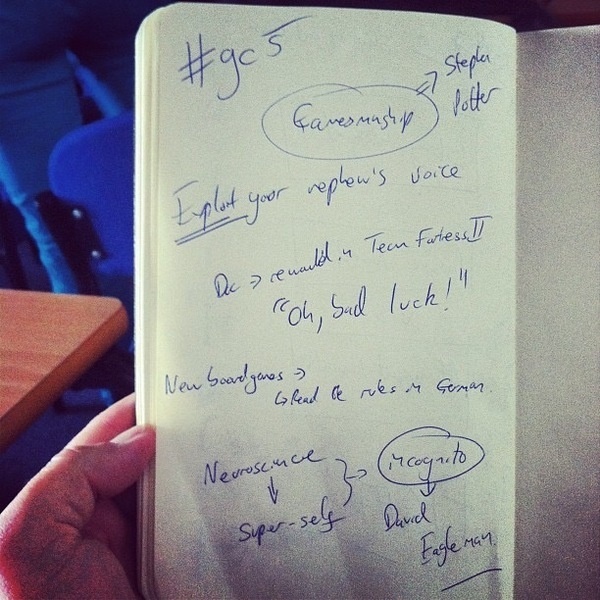 #gc5
Gamesmanship
Stephen
Potter
Exploit your nephew's voice
in Team Fortress II
"Oh, bad luck!"
New boardgames →
↳ Read the rules in German.
Neuroscience
↓
Super-self
→ incognito
↓
David
Eagleman